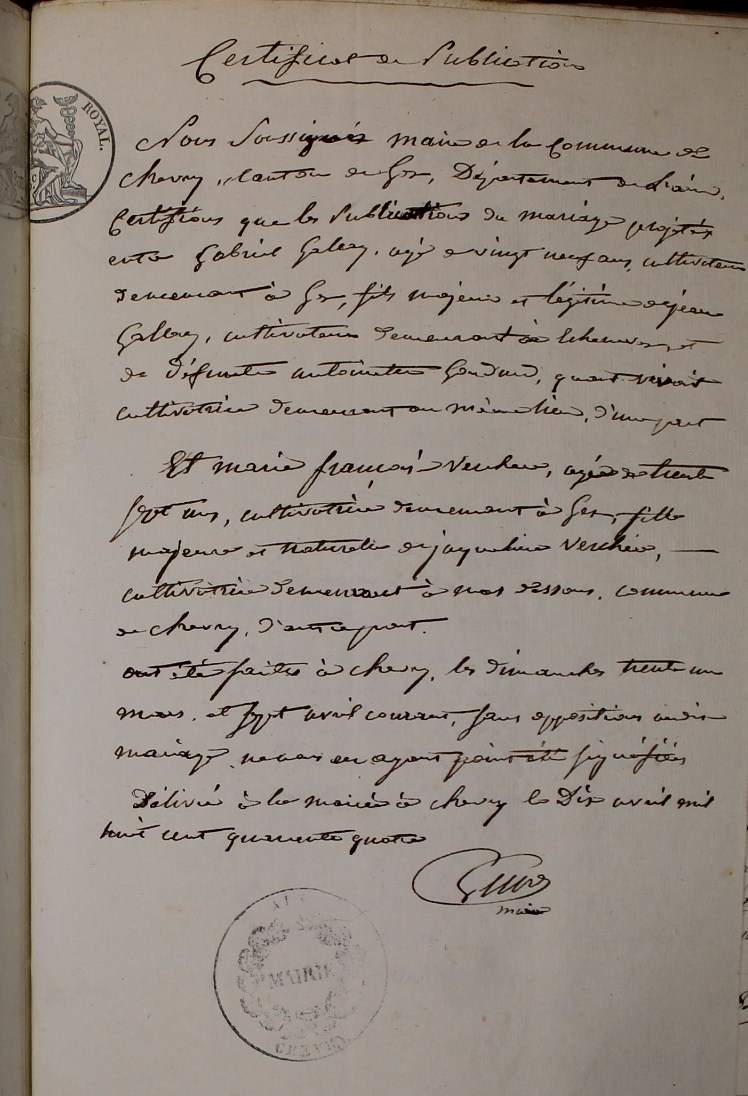 Certificat de Publication
ROYAL.
Nous Soussignés maire de la Commune de
Chevry, Canton de Gex, Département de l'ain,
Certifions que les Publications du mariage projetés
entre Gabriel Gallay, agé de vingt neuf ans, cultivateur
demeurant à Gex, fils majeur et légitime de jean
Gallay, cultivateur demeurant à Echenevex, et
de défunte antoinette Goudard, quant vivait
cultivatrice demeurant au même lieu, d'une part
Et marie françoise Verchère, agée de trente
sept ans, cultivatrice demeurant à Gex, fille
majeure et naturelle de jaqueline Verchère,
cultivatrice demeurant à nas dessous, commune
de chevry, d'autre part.
ont été faites à chevry, les dimanches trente un
mars, et sept avril courant, sans oppositions audit
mariage, ne nous en ayant point été signifiées
Délivré à la mairie à chevry le Dix avril mil
huit cent quarante quatre
maire
MAIRIE
CHEVRY